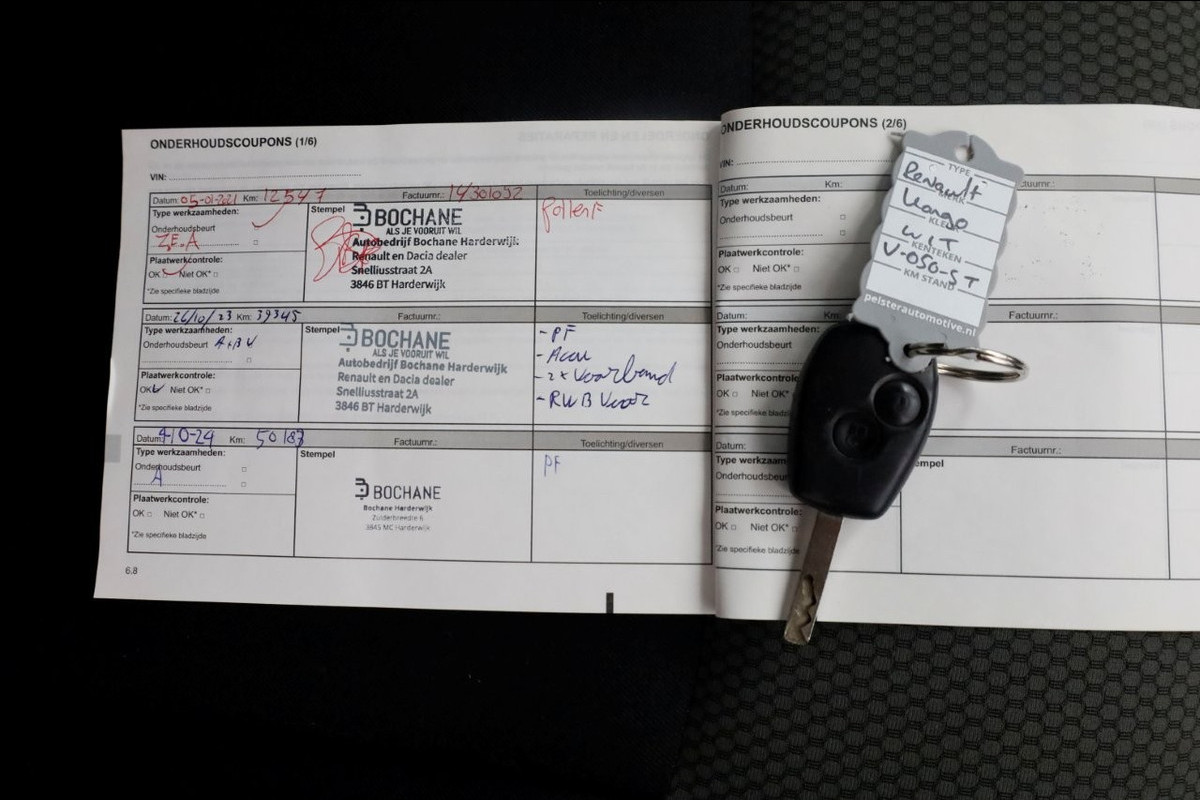 ONDERHOUDSCOUPONS (1/6)
VIN:
Datum: 05-01-2021 Km: 12547 Factuurnr.: 14301032 Toelichting/diversen
Type werkzaamheden:
Onderhoudsbeurt
Z.E.A
Plaatwerkcontrole:
OK Niet OK*
*Zie specifieke bladzijde
Stempel
BOCHANE
ALS JE VOORUIT WIL
Autobedrijf Bochane Harderwijk
Renault en Dacia dealer
Snelliusstraat 2A
3846 BT Harderwijk
PollenF
Datum: 26/10/23 Km: 39345 Factuurnr.: Toelichting/diversen
Type werkzaamheden:
Onderhoudsbeurt A+BV
Plaatwerkcontrole:
OK Niet OK*
*Zie specifieke bladzijde
Stempel
BOCHANE
ALS JE VOORUIT WIL
Autobedrijf Bochane Harderwijk
Renault en Dacia dealer
Snelliusstraat 2A
3846 BT Harderwijk
- PF
- Accu
- 2x Voorband
- RWB Voor
Datum: Km: 50183 Factuurnr.: Toelichting/diversen
Type werkzaamheden:
Onderhoudsbeurt
A
Plaatwerkcontrole:
OK Niet OK*
*Zie specifieke bladzijde
Stempel
BOCHANE
Bochane Harderwijk
Zuiderbreedte 6
3845 MC Harderwijk
PF
6.8
ONDERHOUDSCOUPONS (2/6)
VIN:
Datum: Km:
Type werkzaamheden:
Onderhoudsbeurt
Plaatwerkcontrole:
OK Niet OK*
*Zie specifieke bladzijde
Datum: Km: Factuurnr.:
Type werkzaamheden:
Onderhoudsbeurt
Plaatwerkcontrole:
OK Niet OK*
*Zie specifieke bladzijde
Datum: Factuurnr.:
Type werkzaam
Onderhoudsbeu
Plaatwerkcontrole:
OK Niet OK*
*Zie specifieke bladzijde
TYPE
Renault
MERK
Kango
KLEUR
WIT
KENTEKEN
V-050-ST
KM STAND
pelsterautomotive.nl